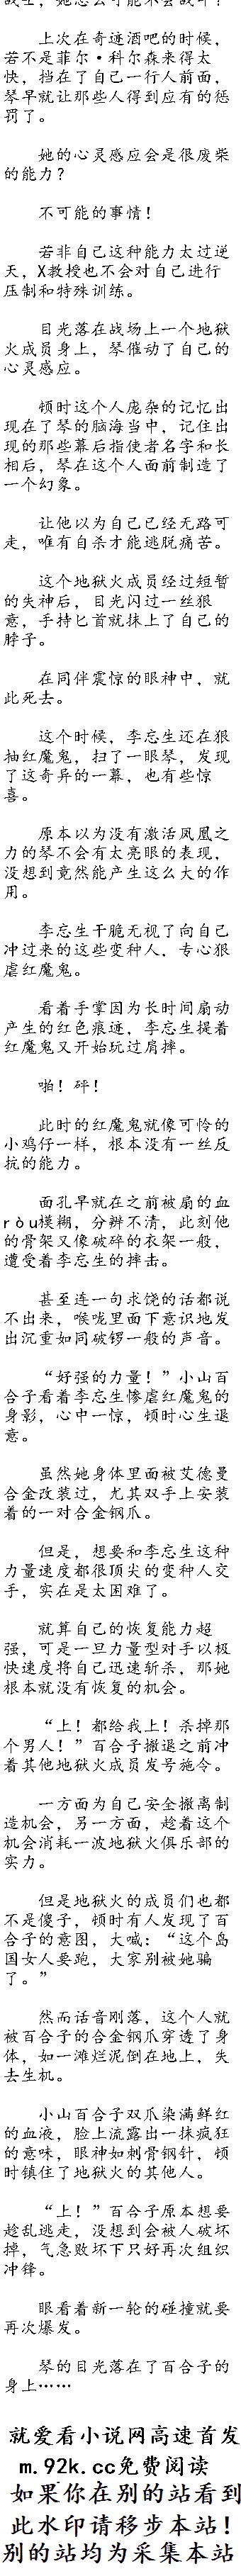 上次在奇迹酒吧的时候，
若不是菲尔·科尔森来得太
快，挡在了自己一行人前面，
琴早就让那些人得到应有的惩
罚了。
她的心灵感应会是很废柴
的能力？
不可能的事情！
若非自己这种能力太过逆
天，X教授也不会对自己进行
压制和特殊训练。
目光落在战场上一个地狱
火成员身上，琴催动了自己的
心灵感应。
顿时这个人庞杂的记忆出
现在了琴的脑海当中，记住出
现的那些幕后指使者名字和长
相后，琴在这个人面前制造了
一个幻象。
让他以为自己已经无路可
走，唯有自杀才能逃脱痛苦。
这个地狱火成员经过短暂
的失神后，目光闪过一丝狠
意，手持匕首就抹上了自己的
脖子。
在同伴震惊的眼神中，就
此死去。
这个时候，李忘生还在狠
抽红魔鬼，扫了一眼琴，发现
了这奇异的一幕，也有些惊
喜。
原本以为没有激活凤凰之
力的琴不会有太亮眼的表现，
没想到竟然能产生这么大的作
用。
李忘生干脆无视了向自己
冲过来的这些变种人，专心狠
虐红魔鬼。
看着手掌因为长时间扇动
产生的红色痕迹，李忘生提着
红魔鬼又开始玩过肩摔。
啪！砰！
此时的红魔鬼就像可怜的
小鸡仔一样，根本没有一丝反
抗的能力。
面孔早就在之前被扇的血
ròu模糊，分辨不清，此刻他
的骨架又像破碎的衣架一般，
遭受着李忘生的摔击。
甚至连一句求饶的话都说
不出来，喉咙里面下意识地发
出沉重如同破锣一般的声音。
“好强的力量！”小山百
合子看着李忘生惨虐红魔鬼的
身影，心中一惊，顿时心生退
意。
虽然她身体里面被艾德曼
合金改装过，尤其双手上安装
着的一对合金钢爪。
但是，想要和李忘生这种
力量速度都很顶尖的变种人交
手，实在是太困难了。
就算自己的恢复能力超
强，可是一旦力量型对手以极
快速度将自己迅速斩杀，那她
根本就没有恢复的机会。
“上！都给我上！杀掉那
个男人！”百合子撤退之前冲
着其他地狱火成员发号施令。
一方面为自己安全撤离制
造机会，另一方面，趁着这个
机会消耗一波地狱火俱乐部的
实力。
但是地狱火的成员们也都
不是傻子，顿时有人发现了百
合子的意图，大喊：“这个岛
国女人要跑，大家别被她骗
了。”
然而话音刚落，这个人就
被百合子的合金钢爪穿透了身
体，如一滩烂泥倒在地上，失
去生机。
小山百合子双爪染满鲜红
的血液，脸上流露出一抹疯狂
的意味，眼神如刺骨钢针，顿
时镇住了地狱火的其他人。
“上！”百合子原本想要
趁乱逃走，没想到会被人破坏
掉，气急败坏下只好再次组织
冲锋。
眼看着新一轮的碰撞就要
再次爆发。
琴的目光落在了百合子的
身上……
就爱看小说网高速首发
m.92k.cc免费阅读
如果你在别的站看到
此水印请移步本站！
别的站均为采集本站